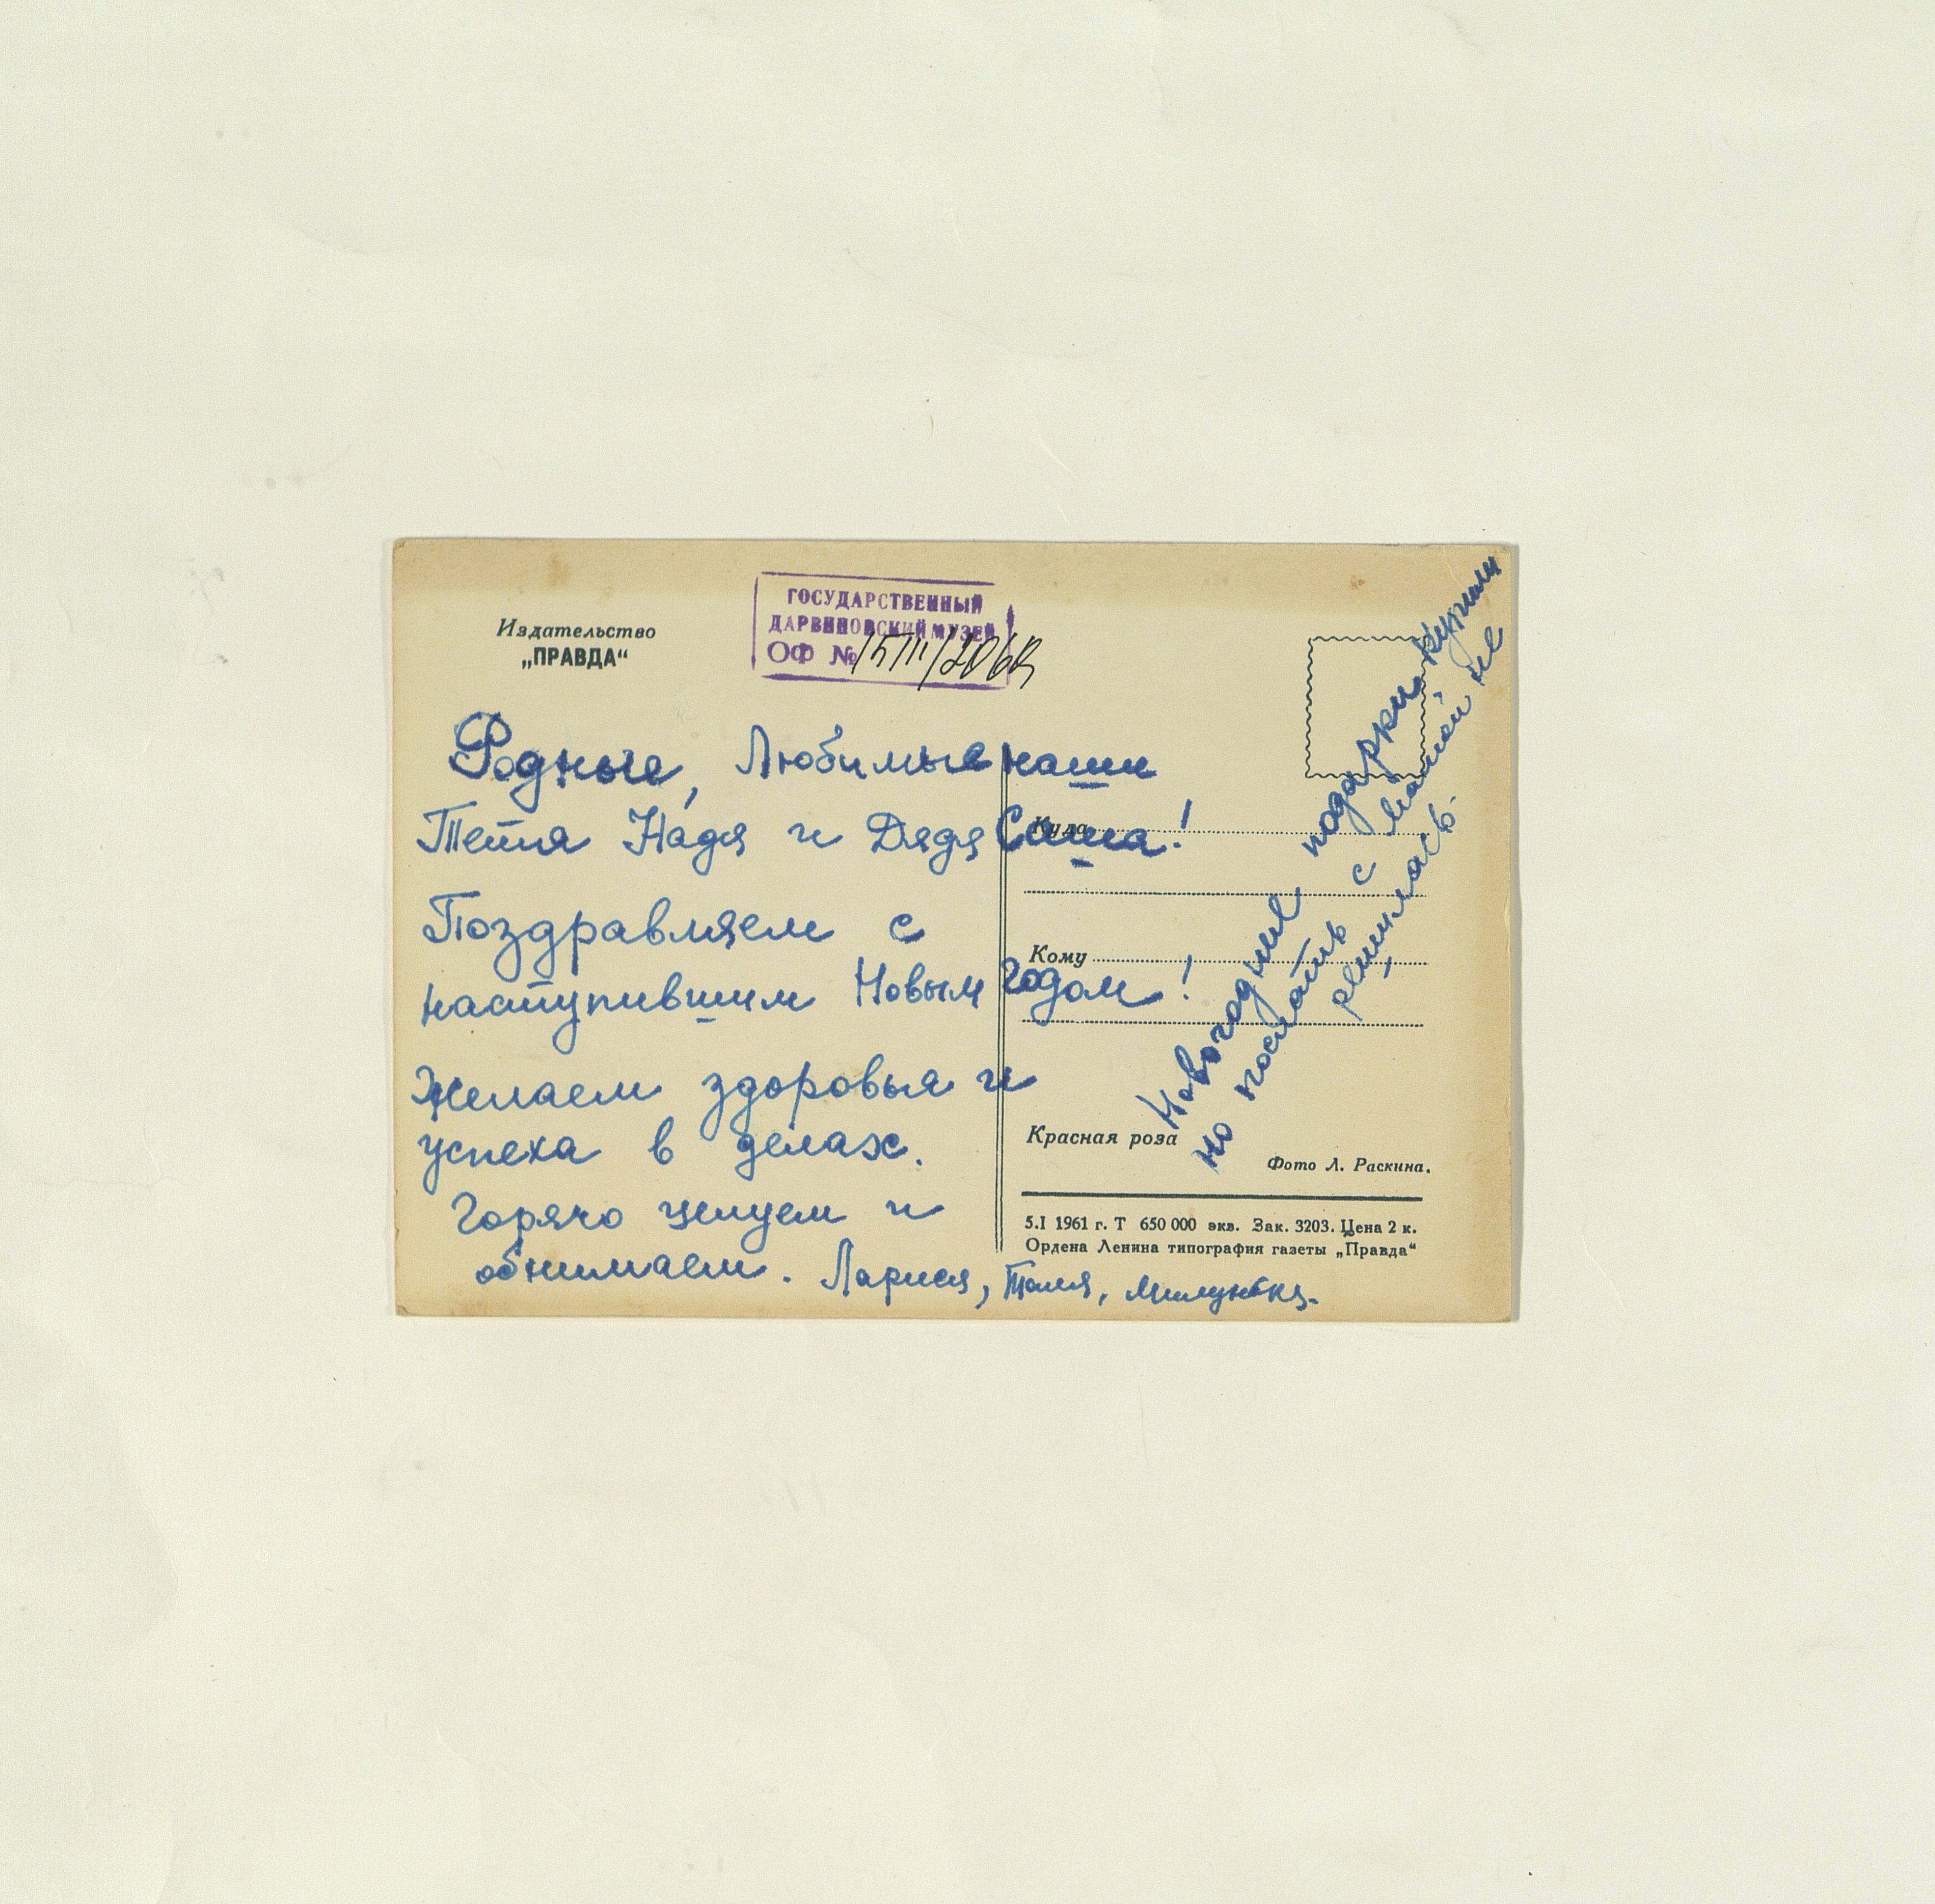 Издательство
„ПРАВДА“
ГОСУДАРСТВЕННЫЙ
ДАРВИНОВСКИЙ МУЗЕЙ
ОФ №
Родные, Любимые наши
Тетя Надя и Дядя Саша!
Поздравляем с
наступившим Новым Годом!
Желаем здоровья и
успеха в делах.
Горячо целуем и
обнимаем. Лариса, Толя, Милунька.
Новогодние подарки купили
но послать с мамой не
решилась.
Куда
Кому
Красная роза
Фото Л. Раскина.
5.I 1961 г. Т 650 000 экз. Зак. 3203. Цена 2 к.
Ордена Ленина типография газеты „Правда“